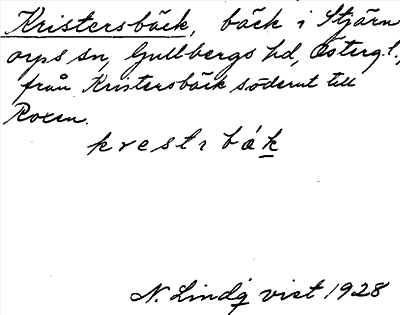 Kristersbäck, bäck i Stjärn
orps sn, Gullbergs hd, Östergl.,
från Kristersbäck söderut till
Roxen.
krestɩ bák
N. Lindq vist 1928